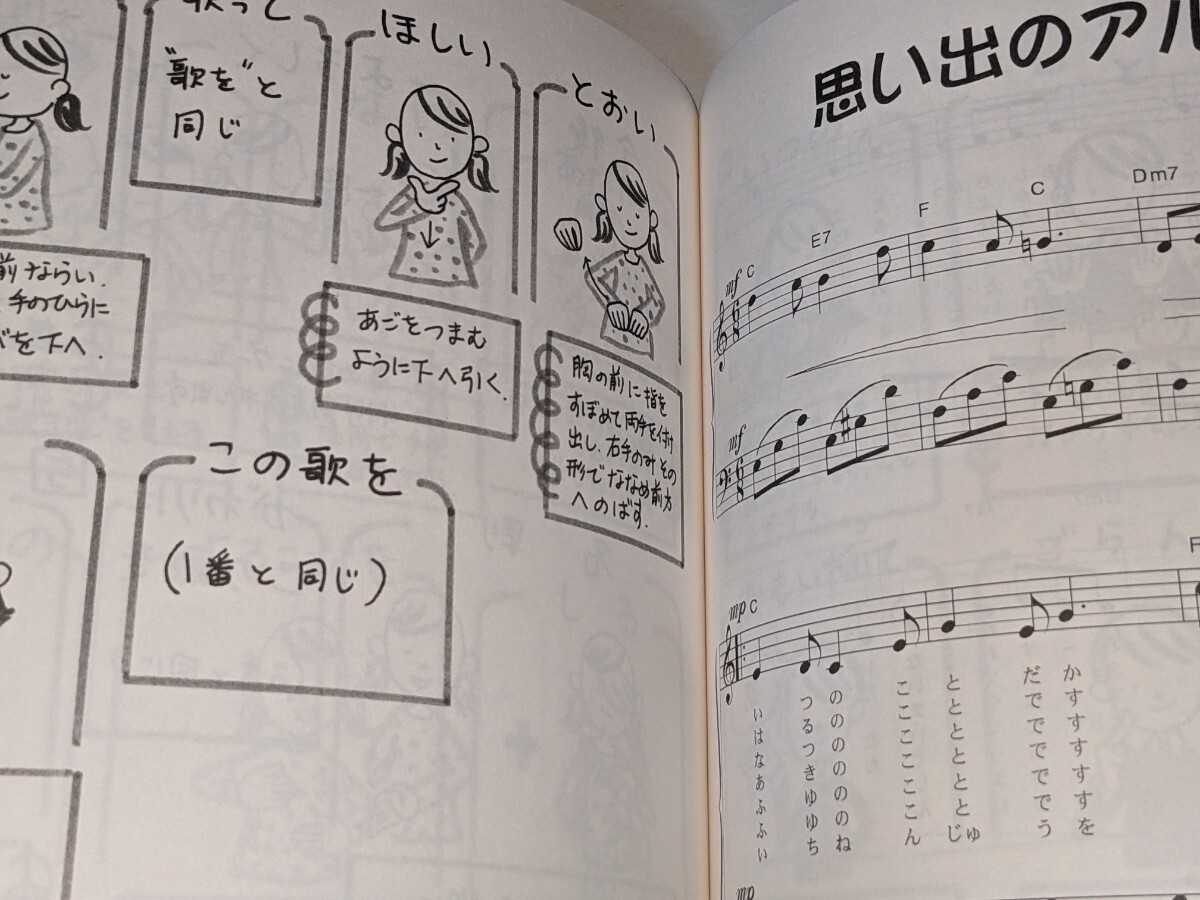 歌って
"歌を"と
同じ
ほしい
とおい
前ならい.
手のひらに
を下へ.
あごをつまむ
ように下へ引く.
胸の前に指を
すぼめて両手を付け
出し、右手のみその
形でななめ前方
へのばす.
この歌を
(1番と同じ)
思い出のアル
mf C E7 F C Dm7
6
8
mf
6
8
mp C F
いはなあふふい
つるつきゆゆち
のののののののね
こここここここん
とととととととじゅ
だでででででう
かすすすすすを
mp